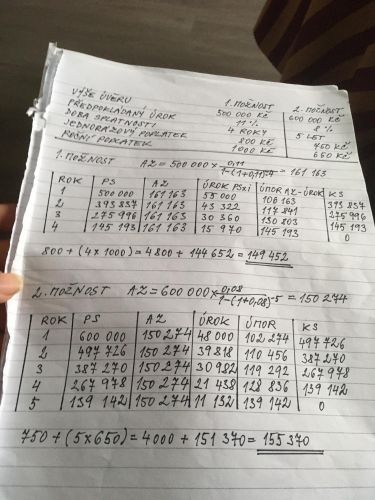 1. MOŽNOST 2. MOŽNOST
VÝŠE ÚVĚRU 500 000 KČ 600 000 KČ
PŘEDPOKLÁDANÝ ÚROK 11 % 8 %
DOBA SPLATNOSTI 4 ROKY 5 LET
JEDNORÁZOVÝ POPLATEK 800 KČ 750 KČ
ROČNÍ POPLATEK 1000 KČ 650 KČ
1. MOŽNOST AZ = 500 000 × 0,11 / 1-(1+0,11)-4 = 161 163
ROK PS AZ ÚROK PSxi ÚMOR AZ-ÚROK KS
1 500 000 161 163 55 000 106 163 393 837
2 393 837 161 163 43 322 117 841 275 996
3 275 996 161 163 30 360 130 803 145 193
4 145 193 161 163 15 970 145 193 0
800 + (4x1000) = 4800 + 144 652 = 149 452
2. MOŽNOST AZ = 600 000 × 0,08 / 1-(1+0,08)-5 = 150 274
ROK PS AZ ÚROK ÚMOR KS
1 600 000 150 274 48 000 102 274 497 726
2 497 726 150 274 39 818 110 456 387 270
3 387 270 150 274 30 982 119 292 267 978
4 267 978 150 274 21 438 128 836 139 142
5 139 142 150 274 11 132 139 142 0
750 + (5x650) = 4000 + 151 370 = 155 370